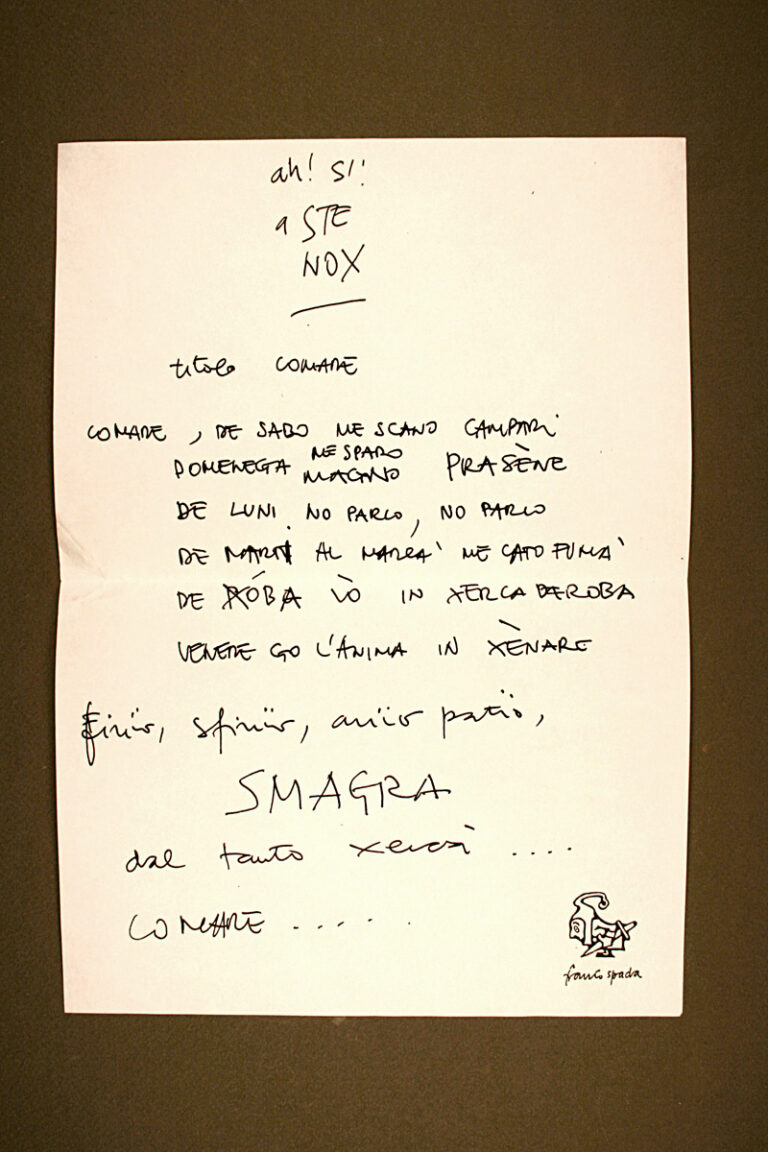 ah! SI!
a STE
NOX
titolo COMARE
COMARE, DE SABO ME SCANO CAMPARI
ME SPARO
DOMENEGA MAGNO PRASÈNE
DE LUNI NO PARLO, NO PARLO
DE MARTI AL MARCA' ME CATO FUMA'
DE RÓBA VÒ IN XERCA DE ROBA
VENERE GO L'ÀNIMA IN XÈNARE
finïo, sfinïo, patïo,
SMAGRA
dal tanto xercà ....
COMARE .....
franco spada